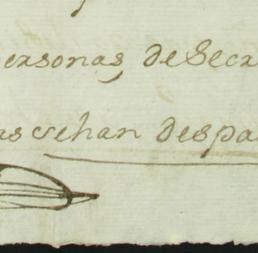 personas de Secr
as se han despa